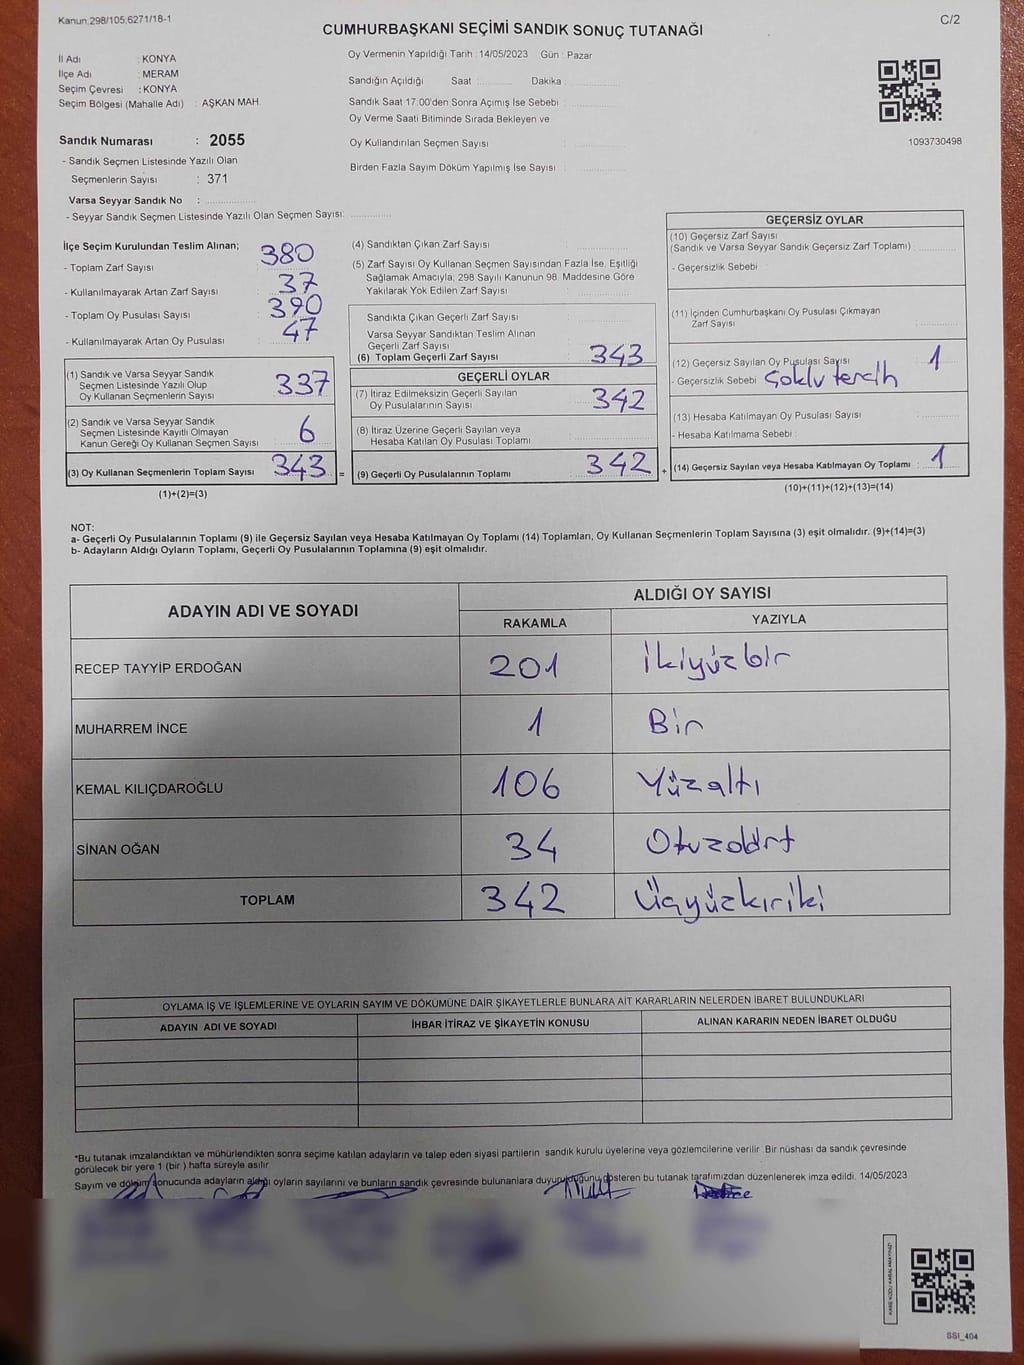 Kanun 298/105,6271/18-1
CUMHURBAŞKANI SEÇİMİ SANDIK SONUÇ TUTANAĞI
C/2
İl Adı : KONYA
İlçe Adı : MERAM
Seçim Çevresi : KONYA
Seçim Bölgesi (Mahalle Adı) : AŞKAN MAH.
Oy Vermenin Yapıldığı Tarih : 14/05/2023 Gün : Pazar
Sandığın Açıldığı Saat : Dakika :
Sandık Saat 17.00'den Sonra Açımış İse Sebebi :
Oy Verme Saati Bitiminde Sırada Bekleyen ve
Oy Kullandırılan Seçmen Sayısı :
Birden Fazla Sayım Döküm Yapılmış İse Sayısı :
1093730498
Sandık Numarası : 2055
- Sandık Seçmen Listesinde Yazılı Olan
Seçmenlerin Sayısı : 371
Varsa Seyyar Sandık No :
- Seyyar Sandık Seçmen Listesinde Yazılı Olan Seçmen Sayısı:
İlçe Seçim Kurulundan Teslim Alınan;
- Toplam Zarf Sayısı : 380
- Kullanılmayarak Artan Zarf Sayısı : 37
- Toplam Oy Pusulası Sayısı : 390
- Kullanılmayarak Artan Oy Pusulası : 47
(1) Sandık ve Varsa Seyyar Sandık
Seçmen Listesinde Yazılı Olup
Oy Kullanan Seçmenlerin Sayısı 337
(2) Sandık ve Varsa Seyyar Sandık
Seçmen Listesinde Kayıtlı Olmayan
Kanun Gereği Oy Kullanan Seçmen Sayısı 6
(3) Oy Kullanan Seçmenlerin Toplam Sayısı 343 =
(1)+(2)=(3)
(4) Sandıktan Çıkan Zarf Sayısı :
(5) Zarf Sayısı Oy Kullanan Seçmen Sayısından Fazla İse, Eşitliği
Sağlamak Amacıyla; 298 Sayılı Kanunun 98. Maddesine Göre
Yakılarak Yok Edilen Zarf Sayısı :
Sandıkta Çıkan Geçerli Zarf Sayısı :
Varsa Seyyar Sandıktan Teslim Alınan
Geçerli Zarf Sayısı :
(6) Toplam Geçerli Zarf Sayısı 343
GEÇERLİ OYLAR
(7) İtiraz Edilmeksizin Geçerli Sayılan
Oy Pusulalarının Sayısı 342
(8) İtiraz Üzerine Geçerli Sayılan veya
Hesaba Katılan Oy Pusulası Toplamı
(9) Geçerli Oy Pusulalarının Toplamı 342 +
GEÇERSİZ OYLAR
(10) Geçersiz Zarf Sayısı
(Sandık ve Varsa Seyyar Sandık Geçersiz Zarf Toplamı) :
- Geçersizlik Sebebi :
(11) İçinden Cumhurbaşkanı Oy Pusulası Çıkmayan
Zarf Sayısı :
(12) Geçersiz Sayılan Oy Pusulası Sayısı 1
- Geçersizlik Sebebi Çoklu tercih
(13) Hesaba Katılmayan Oy Pusulası Sayısı :
- Hesaba Katılmama Sebebi :
(14) Geçersiz Sayılan veya Hesaba Katılmayan Oy Toplamı : 1
(10)+(11)+(12)+(13)=(14)
NOT:
a- Geçerli Oy Pusulalarının Toplamı (9) ile Geçersiz Sayılan veya Hesaba Katılmayan Oy Toplamı (14) Toplamları, Oy Kullanan Seçmenlerin Toplam Sayısına (3) eşit olmalıdır. (9)+(14)=(3)
b- Adayların Aldığı Oyların Toplamı, Geçerli Oy Pusulalarının Toplamına (9) eşit olmalıdır.
ADAYIN ADI VE SOYADI
ALDIĞI OY SAYISI
RAKAMLA YAZIYLA
RECEP TAYYİP ERDOĞAN 201 İkiyüzbir
MUHARREM İNCE 1 Bir
KEMAL KILIÇDAROĞLU 106 Yüzaltı
SİNAN OĞAN 34 Otuzdört
TOPLAM 342 Üçyüzkırkiki
OYLAMA İŞ VE İŞLEMLERİNE VE OYLARIN SAYIM VE DÖKÜMÜNE DAİR ŞİKAYETLERLE BUNLARA AİT KARARLARIN NELERDEN İBARET BULUNDUKLARI
ADAYIN ADI VE SOYADI İHBAR İTİRAZ VE ŞİKAYETİN KONUSU ALINAN KARARIN NEDEN İBARET OLDUĞU
*Bu tutanak imzalandıktan ve mühürlendikten sonra seçime katılan adayların ve talep eden siyasi partilerin sandık kurulu üyelerine veya gözlemcilerine verilir. Bir nüshası da sandık çevresinde
görülecek bir yere 1 (bir ) hafta süreyle asılır.
Sayım ve döküm sonucunda adayların aldığı oyların sayılarını ve bunların sandık çevresinde bulunanlara duyurulduğunu gösteren bu tutanak tarafımızdan düzenlenerek imza edildi. 14/05/2023
SSI_404